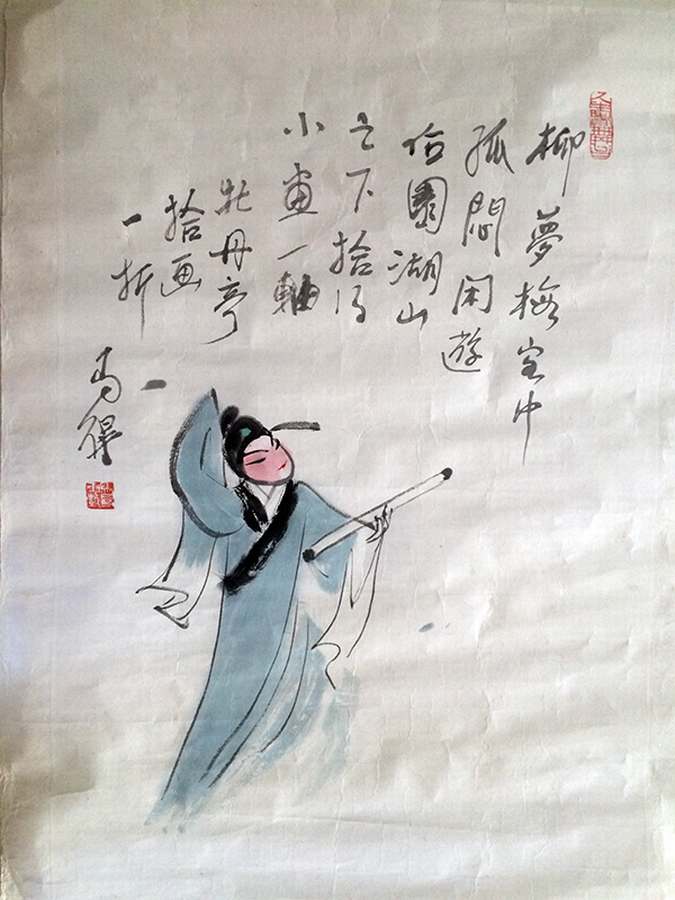 柳夢梅客中
孤悶闲遊
後園湖山
之下拾得
小畫一軸
牡丹亭
拾画
一折
馬得